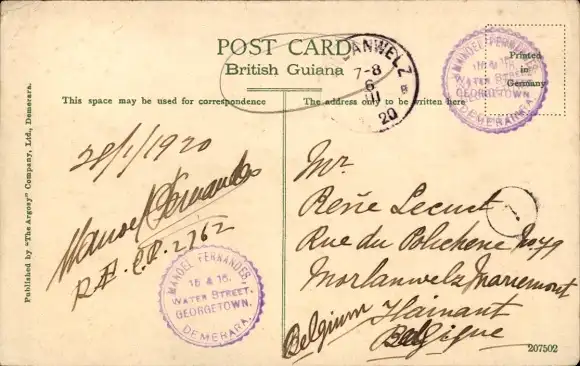 POST CARD
British Guiana
This space may be used for correspondence
The address only to be written here
Printed
in
Germany
MANOEL FERNANDES,
15 & 16,
WATER STREET.
GEORGETOWN.
DEMERARA.
LANWELZ
7-8
6
II
20
B
28/1/1920
Manoel Fernandes
2762
Mr
René Lecust
Rue du No 79
Morlanwelz Mariemont
Hainant
Belgium Belgique
MANOEL FERNANDES,
15 & 16,
WATER STREET.
GEORGETOWN.
DEMERARA.
1
Published by "The Argosy" Company, Ltd., Demerara.
207502